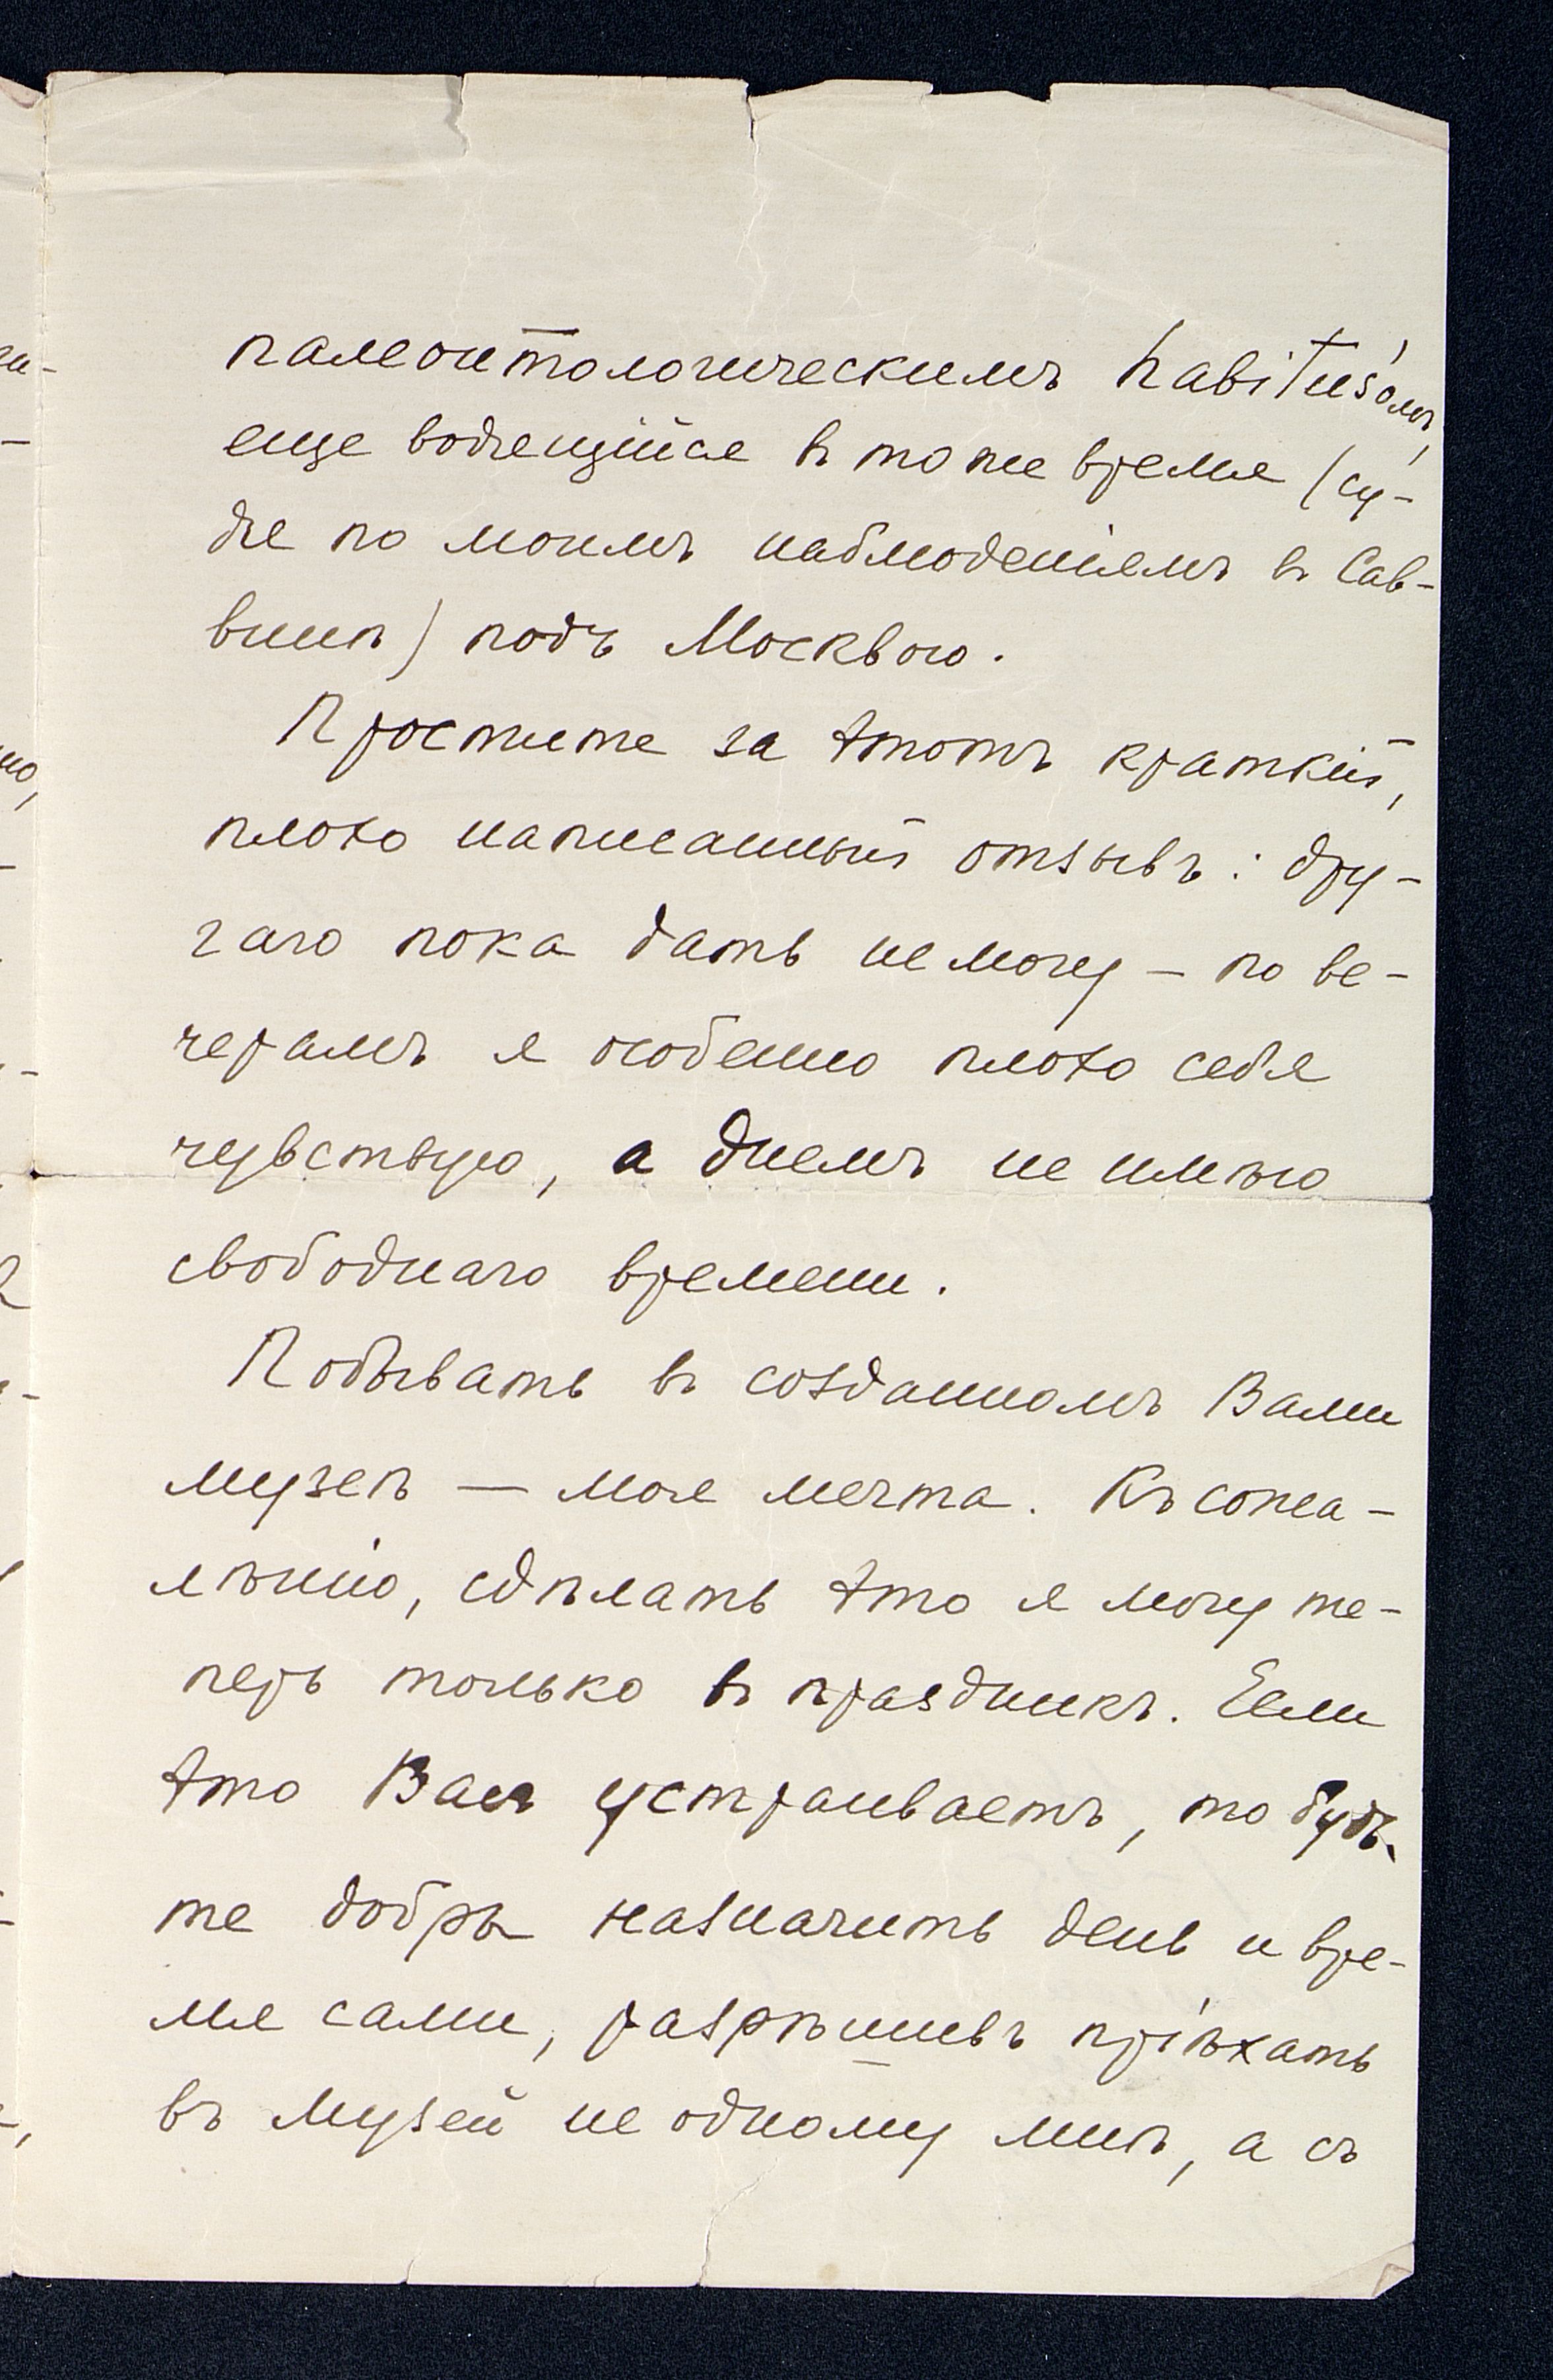 палеонтологическимъ habitus'омъ,
еще водящійся въ то же время (су-
дя по моимъ наблюденіямъ въ Сав-
винѣ) подъ Москвою.
Простите за этотъ краткій,
плохо написанный отзывъ: дру-
гаго пока дать не могу — по ве-
черамъ я особенно плохо себя
чувствую, а днемъ не имѣю
свободнаго времени.
Побывать въ созданномъ Вами
музеѣ — моя мечта. Къ сожа-
лѣнію, сдѣлать это я могу те-
перь только въ праздникъ. Если
это Васъ устраиваетъ, то будь-
те добры назначить день и вре-
мя сами, разрѣшивъ пріѣхать
въ музей не одному мнѣ, а съ